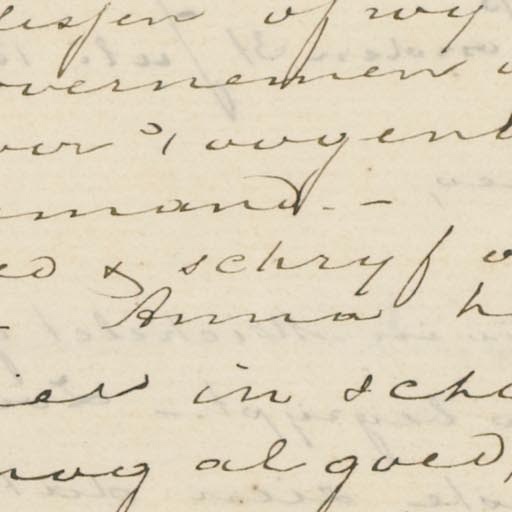 lesjen of wy
overnemen
voor 't oogenb
emand. -
ed & schryf
Anna h
ier in scho
nog al goed,